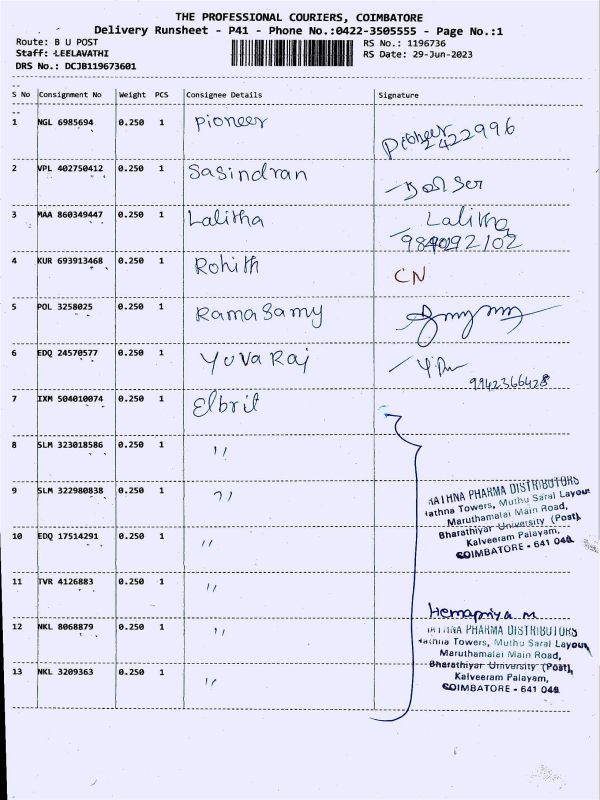 THE PROFESSIONAL COURIERS, COIMBATORE
Delivery Runsheet - P41 - Phone No.:0422-3505555 - Page No.:1
Route: B U POST RS No.: 1196736
Staff: LEELAVATHI RS Date: 29-Jun-2023
DRS No.: DCJB119673601
S No Consignment No Weight PCS Consignee Details Signature
1 NGL 6985694 0.250 1 Pioneer Pioneer
2422996
2 VPL 402750412 0.250 1 Sasindran
3 MAA 860349447 0.250 1 Lalitha Lalitha
4 KUR 693913468 0.250 1 Rohith CN
5 POL 3258025 0.250 1 Ramasamy
6 EDQ 24570577 0.250 1 Yuvaraj
9942366428
7 IXM 504010074 0.250 1 Elbrit
8 SLM 323018586 0.250 1 "
9 SLM 322980838 0.250 1 "
RATHNA PHARMA DISTRIBUTORS
Rathna Towers, Muthu Saral Layout
Maruthamalai Main Road,
Bharathiyar University (Post),
Kalveeram Palayam,
COIMBATORE - 641 046.
10 EDQ 17514291 0.250 1 "
11 TVR 4126883 0.250 1 "
Hemapriya M
12 NKL 8068879 0.250 1 "
RATHNA PHARMA DISTRIBUTORS
Rathna Towers, Muthu Saral Layout,
Maruthamalai Main Road,
Bharathiyar University (Post),
Kalveeram Palayam,
COIMBATORE - 641 046.
13 NKL 3209363 0.250 1 "